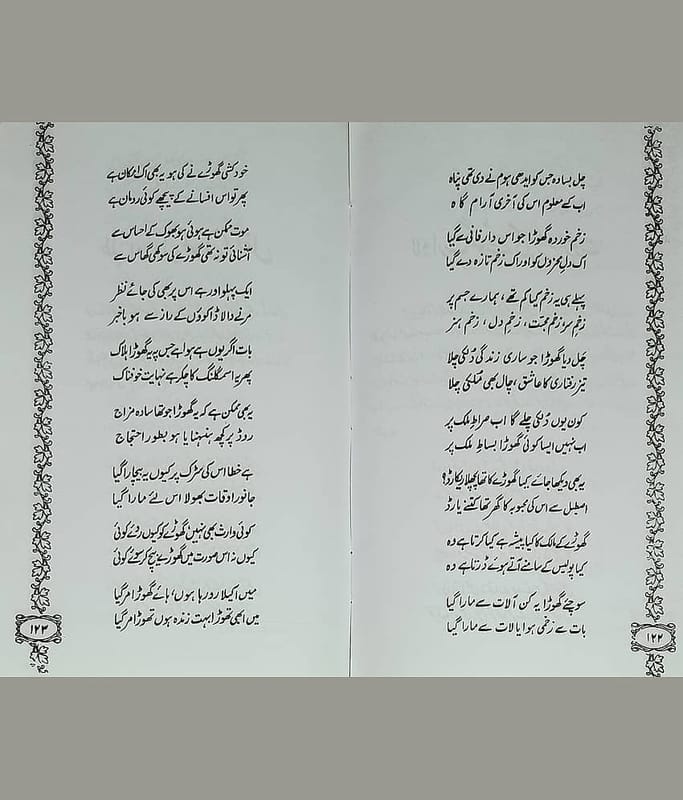 چل بسا وہ جس کو ایدھی ہوم نے دی تھی پناہ
اب کسے معلوم اس کی آخری آرام گاہ
زخم خوردہ گھوڑا جو اس دارِ فانی سے گیا
اک دلِ محزوں کو اور اک زخم تازہ دے گیا
پہلے ہی یہ زخم کیا کم تھے، ہمارے جسم پر
زخمِ سوز، زخمِ محبت، زخمِ دل، زخم ہنر
چل دیا گھوڑا جو ساری زندگی دُلکی چلا
تیز رفتاری کا عاشق، چال بھی مُلکی چلا
کون یوں دُلکی چلے گا اب صراطِ ملک پر
اب نہیں ایسا کوئی گھوڑا بساطِ ملک پر
یہ بھی دیکھا جائے کیا گھوڑے کا تھا پچھلا ریکارڈ؟
اصطبل سے اس کی محبوبہ کا گھر تھا کتنے یارڈ
گھوڑے کے مالک کا کیا پیشہ ہے کیا کرتا ہے وہ
کیا پولیس کے سامنے آتے ہوئے ڈرتا ہے وہ
سوچئے گھوڑا یہ کن آلات سے مارا گیا
بات سے زخمی ہوا یا لات سے مارا گیا
۱۲۲
خودکشی گھوڑے نے کی ہو یہ بھی اک امکان ہے
پھر تو اس افسانے کے پیچھے کوئی رومان ہے
موت ممکن ہے ہوئی ہو بھوک کے احساس سے
آشنائی تو نہ تھی گھوڑے کی سوکھی گھاس سے
ایک پہلو اور ہے اس پر بھی کی جائے نظر
مرنے والا ڈاکوؤں کے راز سے ہو باخبر
بات اگر یوں ہے ہوا ہے جس پہ یہ گھوڑا ہلاک
پھر یہ اسمگلنگ کا چکر ہے نہایت خوفناک
یہ بھی ممکن ہے کہ یہ گھوڑا جو تھا سادہ مزاج
روڈ پر کچھ ہنہنایا ہو بطورِ احتجاج
بے خطا اس کی سڑک پر کیوں یہ بیچارا گیا
جانور اوقات بھولا اس لئے مارا گیا
کوئی وارث بھی نہیں گھوڑے کو کیوں روئے کوئی
کیوں نہ اس صورت میں گھوڑے بیچ کر سوئے کوئی
میں اکیلا رو رہا ہوں، ہائے گھوڑا مر گیا
میں ابھی تھوڑا بہت زندہ ہوں تھوڑا مر گیا
۱۲۳